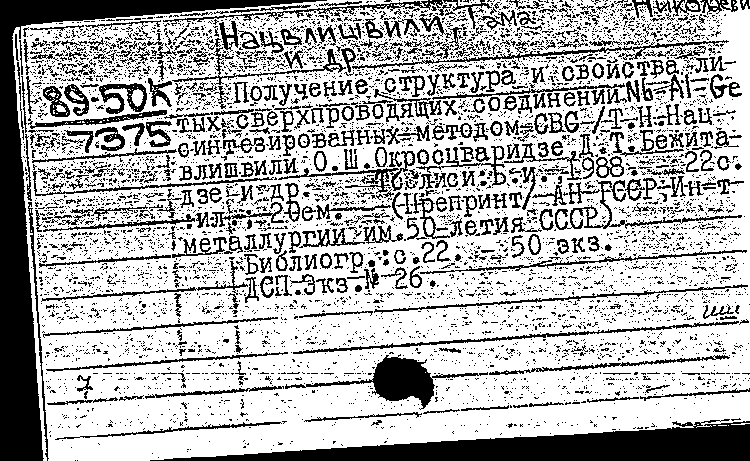 Нацвлишвили, Гама Николаеви
и др
89-50К
7375
Получение, структура и свойства ли-
тых сверхпроводящих соединений Nb-Al-Ge
синтезированных методом СВС /Т.Н.Нац-
влишвили, О.Ш.Окросцваридзе, Л.Т.Бежита-
дзе и др. Тбилиси: Б.и. 1988. 22с.
:ил.; 20см. (Препринт/ АН ГССР, Ин-т
металлургии им.50-летия СССР).
Библиогр.:с.22. - 50 экз.
ДСП.Экз.№ 26.
7